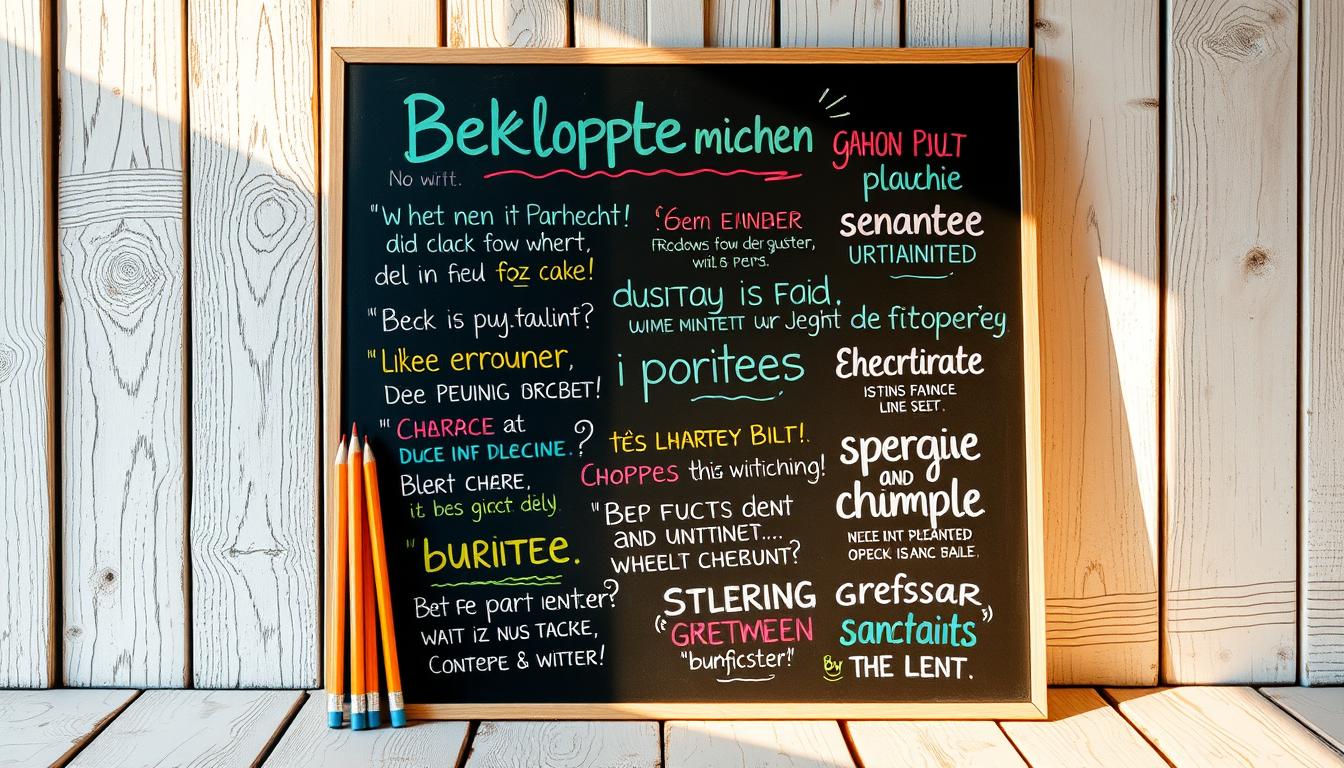 Bekloppte michen
No wirt.
"W het nen it Parhecht!
did clack fow whert,
del in feul foz cake!
"Beck is puy.faulinf?
"Likee errouner,
Dee PEUNIG BRCBET!
" CHARACE at
DUCE INF DLECINE.?
Blert CHERE,
it bes girct dely.
"buRiiTEE.
Bet Fe part ienter?
WAIT IZ NUS TACKE,
CONTEPE & WITTER!
"Gern EINNDER
FRcdows fow der guster,
will 6 pers.
dusitay is Faid.
WIME MINTETT ur Jeght de fitoperey
i poritees
tês LHARTEY BILT!.
CHOPPES this witiching!
"BEP FUCTS dent
AND UNTTINET....
WHEELT CHEBUNT?
STLERING
(GRETWEEN
"bunficster!"
GAHON PJLT
plauchie
senantee
URTIAINITED
Ehecrtirate
ISTINS FAINCE
LINE SEET.
spergiie
AND
chimple
NECE INT PLEANTED
OPECK IS ANC BAILE.
Grefssar
sanctaiits
By THE LENT.